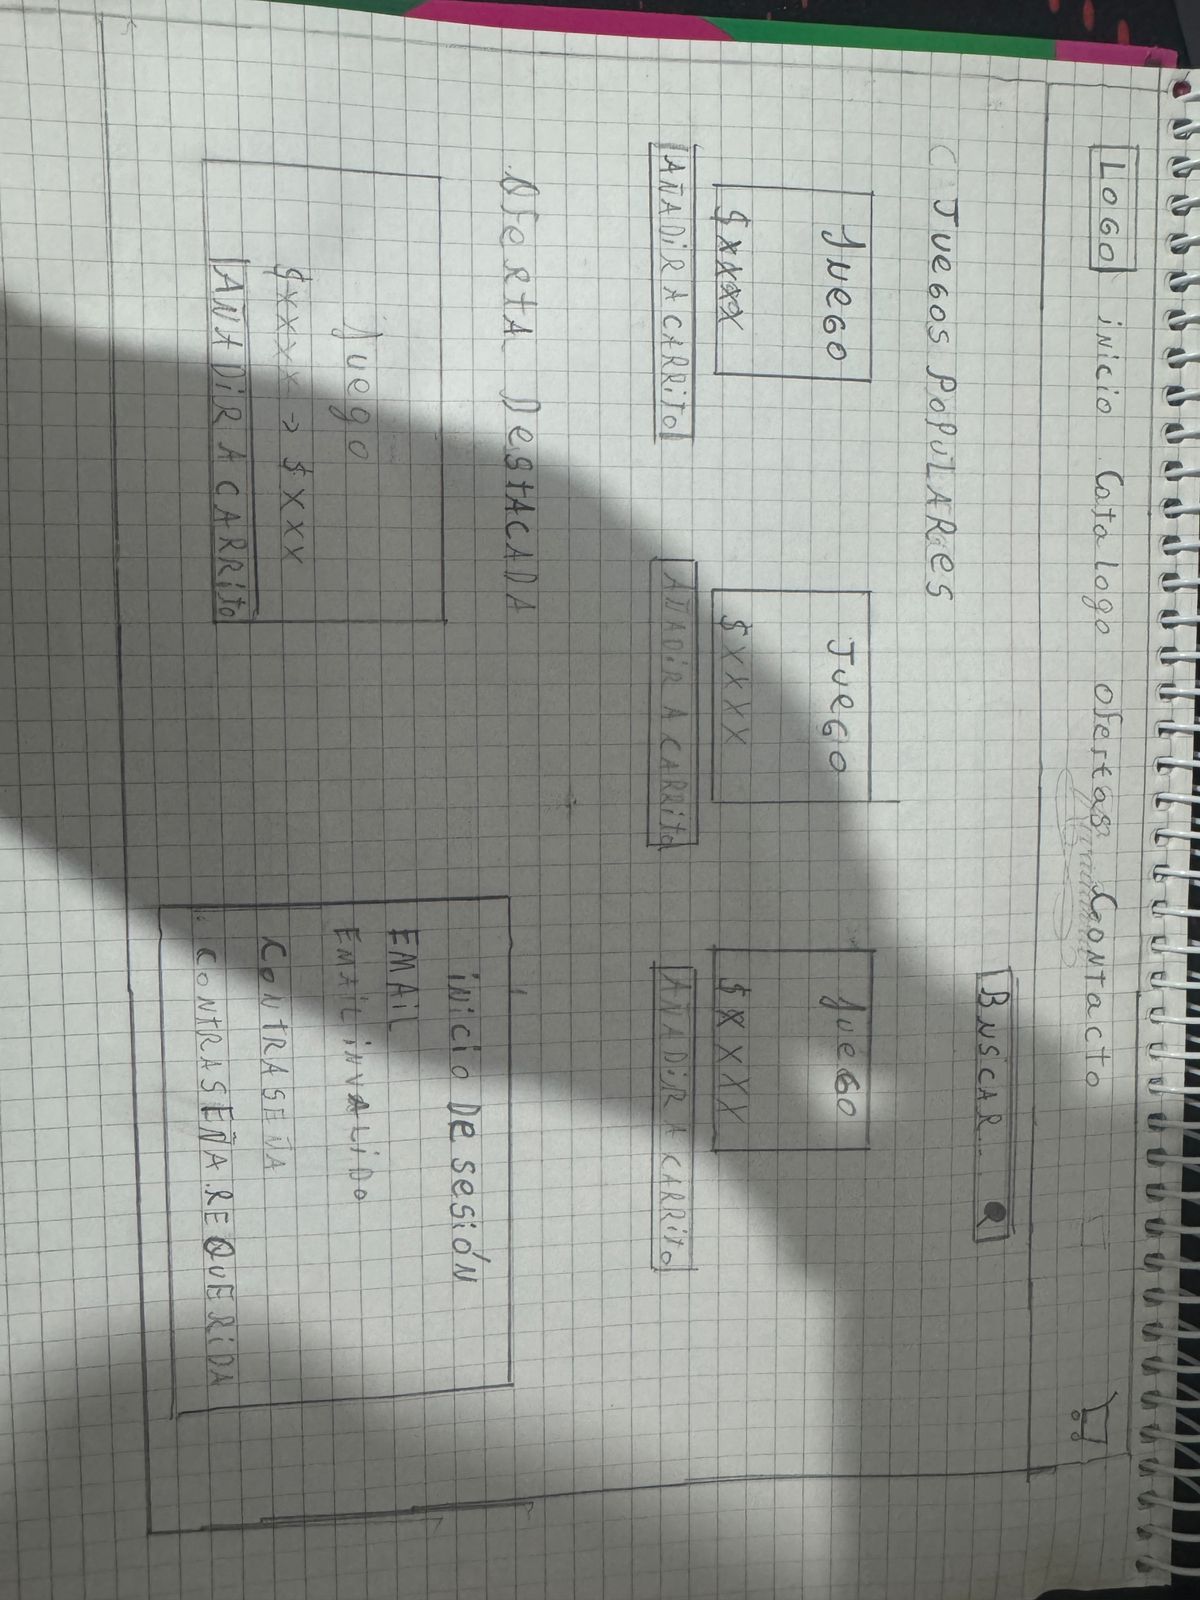 LOGO inicio Catalogo ofertas Contacto
BUSCAR...
JUEGOS POPULARES
JUEGO JUEGO JUEGO
$XXXX $XXXX $XXXX
AÑADIR A CARRITO AÑADIR A CARRITO AÑADIR A CARRITO
OFERTA DESTACADA
Juego
$XXXX -> $XXX
AÑADIR A CARRITO
INICIO DE SESIÓN
EMAIL
EMAIL INVALIDO
CONTRASEÑA
CONTRASEÑA REQUERIDA